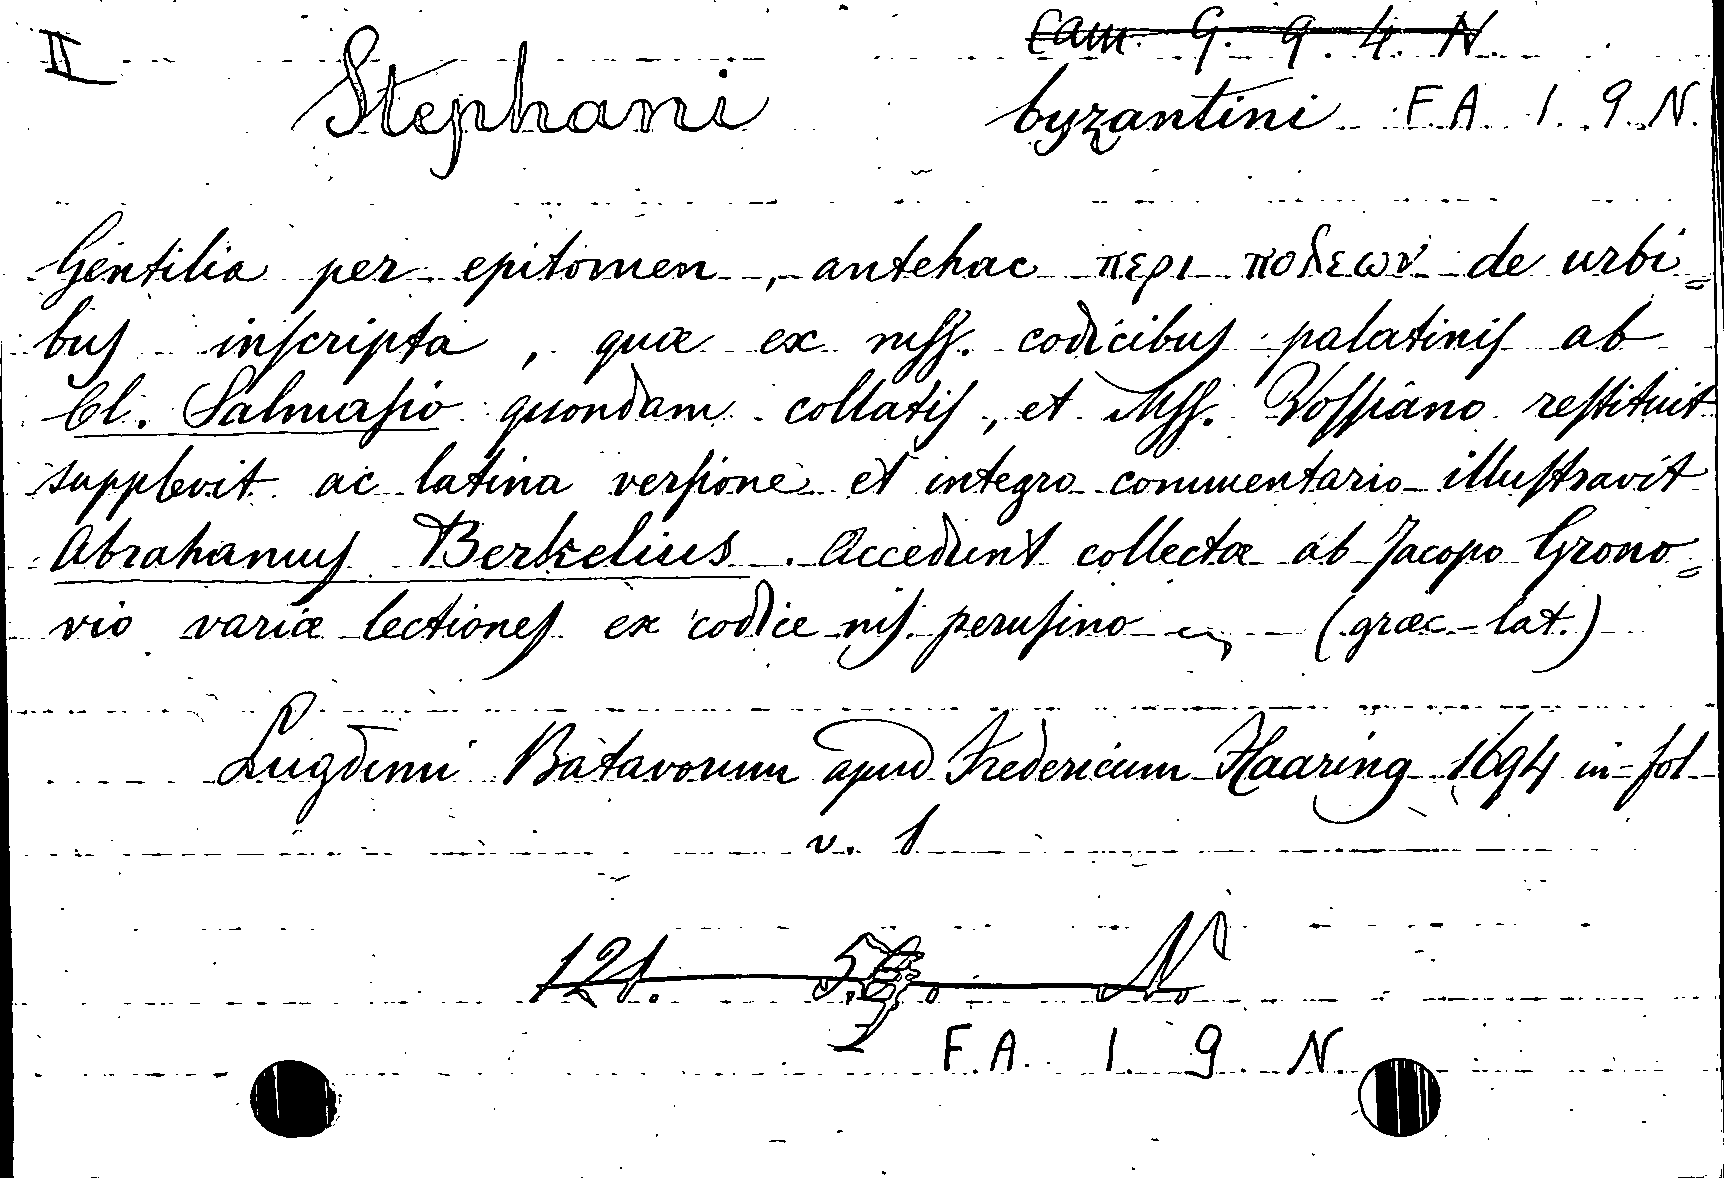 II
Cam. G. 9. 4. N.
Stephani byzantini F. A. 1. 9. N.
Gentilia per epitomen, antehac περι πολεων de urbi=
buſ inſcripta, quæ ex mſſ. codicibuſ palatiniſ ab
Cl. Salmaſio quondam collatiſ, et Mſſ. Voſſiano reſtituit
supplevit ac latina verſione et integro commentario illuſtravit
Abrahamuſ Berkelius. Accedunt collectæ ab Jacopo Grono=
vio variæ lectioneſ ex codice mſ. peruſino (græc-lat.)
Lugduni Batavorum apud Fredericum Haaring 1694 in-fol
v. 1
121. N.
F. A. 1. 9. N.